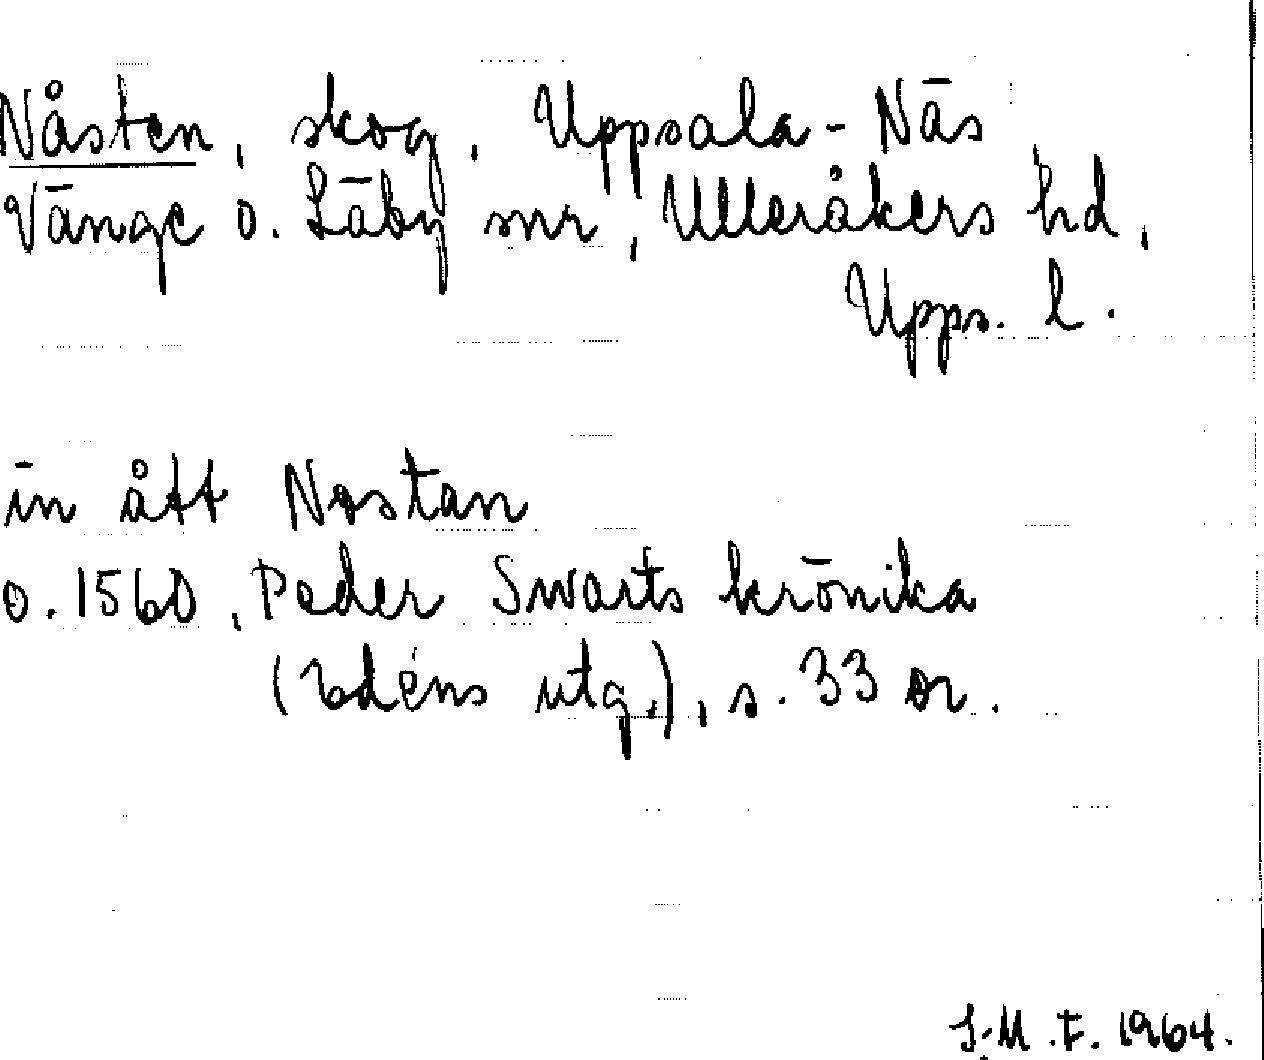 Nåsten, skog, Uppsala-Näs
Vänge o. Läby snr, Ulleråkers hd,
Upps. l.
in ått Nostan
o. 1560, Peder Swarts krönika
(Edéns utg.), s. 33 or.
S.M.F. 1964.